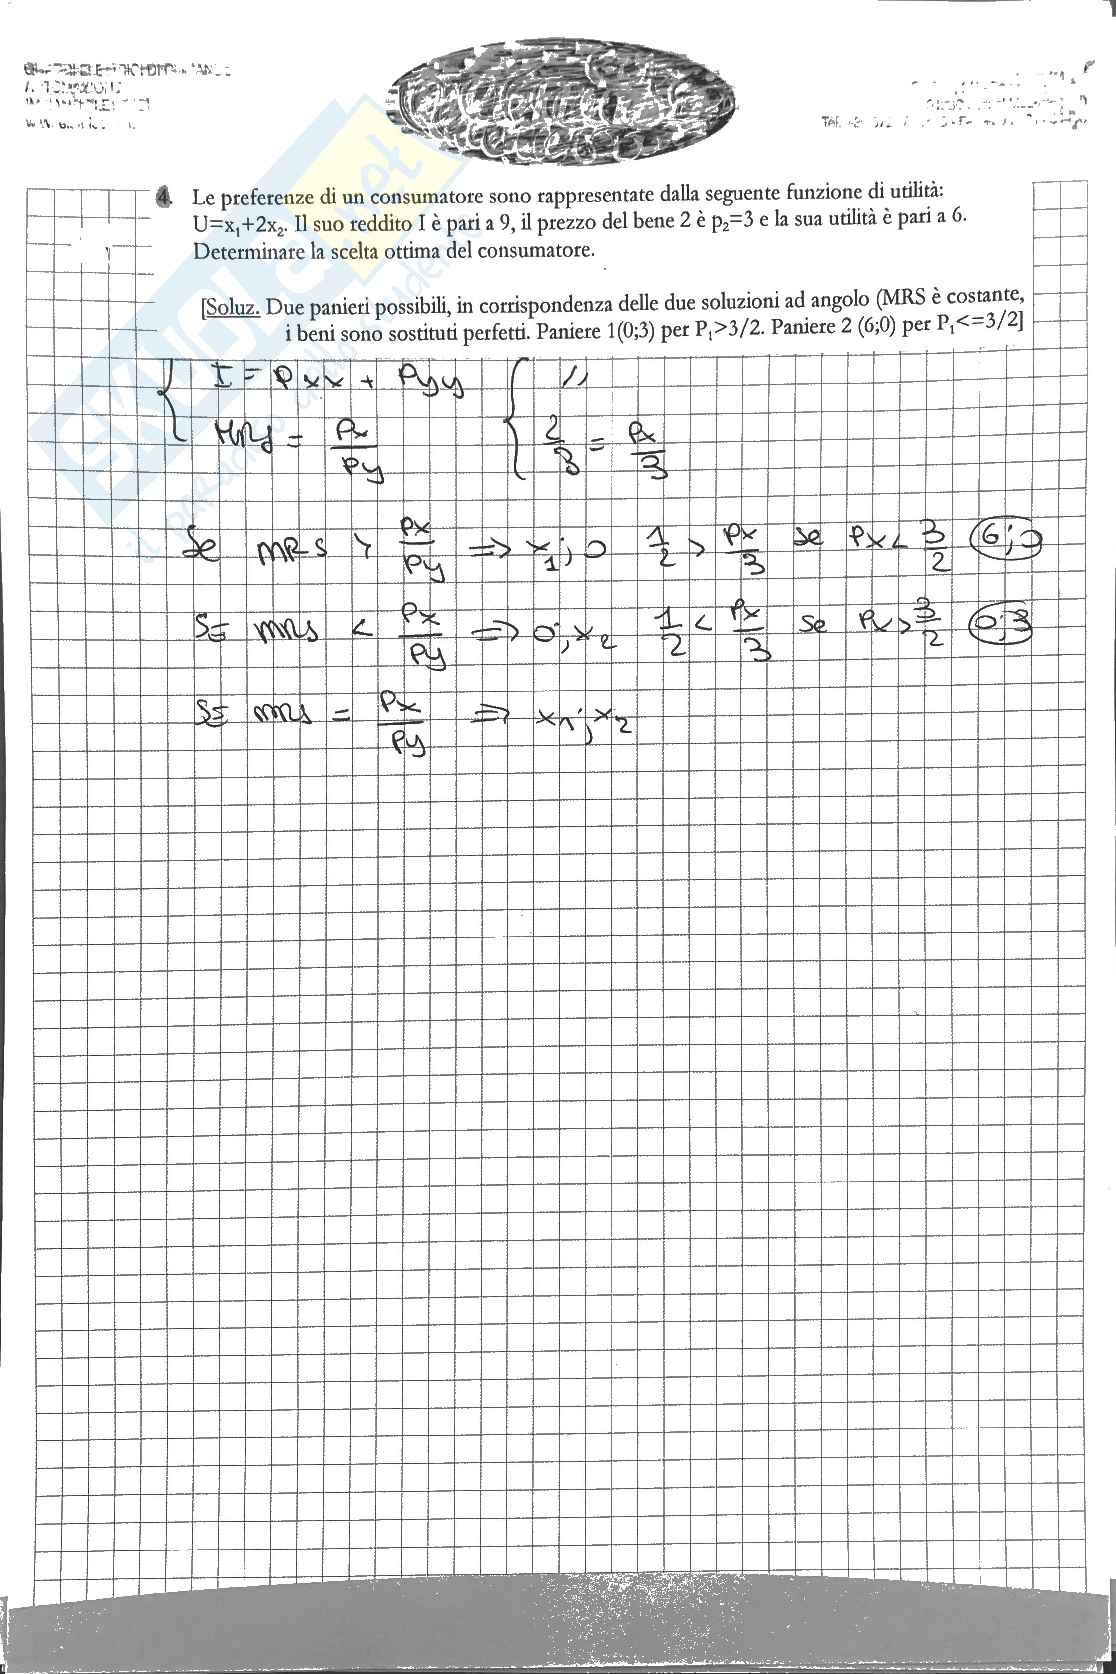 4. Le preferenze di un consumatore sono rappresentate dalla seguente funzione di utilità:
U=x₁+2x₂. Il suo reddito I è pari a 9, il prezzo del bene 2 è p₂=3 e la sua utilità è pari a 6.
Determinare la scelta ottima del consumatore.
[Soluz. Due panieri possibili, in corrispondenza delle due soluzioni ad angolo (MRS è costante,
i beni sono sostituti perfetti. Paniere 1(0;3) per P₁>3/2. Paniere 2 (6;0) per P₁<=3/2]
{ I = Pxx + Pyy { //
MRS = Px/Py 2/3 = Px/3
Se MRS > Px/Py => x₁;0 1/2 > Px/3 se Px < 3/2 (6;0
SE MRS < Px/Py => 0;x₂ 1/2 < Px/3 se Px > 3/2 0;3
SE MRS = Px/Py => x₁;x₂
SKUOLA.net
il paradiso dello studente